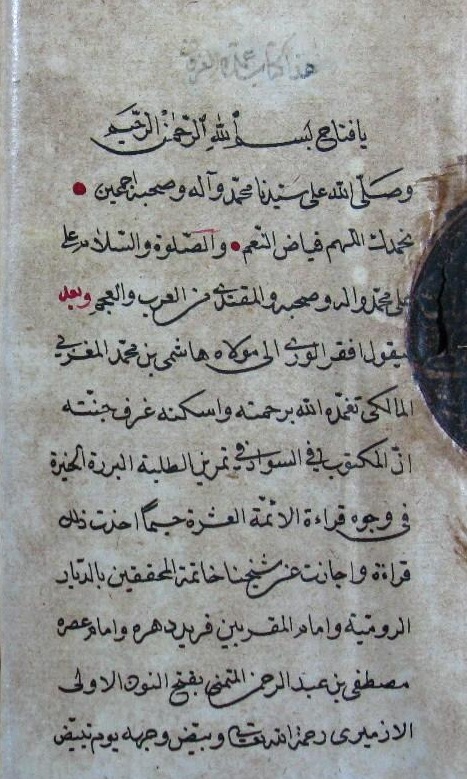 هذا كتاب عمدة
يا فتاح بسم الله الرحمن الرحيم
وصلى الله على سيدنا محمد وآله وصحبه اجمعين
نحمدك اللهم فياض النعم والصلوة والسلام على
على محمد واله وصحبه والمقتدى من العرب والعجم وبعد
فيقول افقر الورى الى مولاه هاشمى بن محمد المغربى
المالكى تغمده الله برحمته واسكنه غرف جنته
انّ المكتوب فى السواد فى تمرين الطلبة البررة الخيرة
فى وجوه قراءة الائمّة العشرة حسبما اخذت ذلك
قراءة واجازة عن شيخنا خاتمة المحققين بالديار
الرومية وامام المقربين فريد دهره وامام عصره
مصطفى بن عبد الرحمن المتمنى بفتح النون الاولى
الازميرى رحمة الله تعالى وبيّض وجهه يوم تبيّض